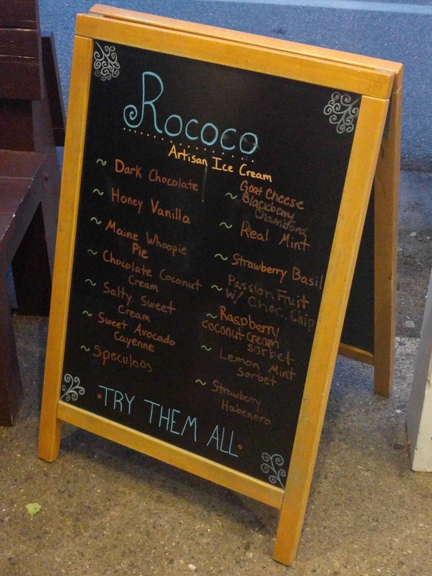 Rococo
Artisan Ice Cream
~ Dark Chocolate
~ Honey Vanilla
~ Maine Whoopie
Pie
~ Chocolate Coconut
Cream
~ Salty Sweet
Cream
~ Sweet Avocado
Cayenne
~ Speculoos
~ Goat Cheese
Blackberry
Chambord
~ Real Mint
~ Strawberry Basil
~ Passion Fruit
W/ Choc. Chip
~ Raspberry
Coconut Cream
Sorbet
~ Lemon Mint
Sorbet
~ Strawberry
Habenero
• TRY THEM ALL •